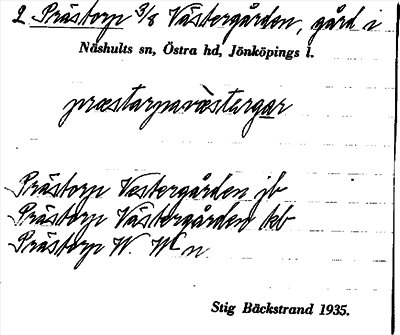 2 Prästorp 3/8 Västergården, gård i
Näshults sn, Östra hd, Jönköpings l.
præstarpavæstergaɽ
Prästorp Vestergården jb
Prästorp Västergården kb
Prästorp W. n
Stig Bäckstrand 1935.